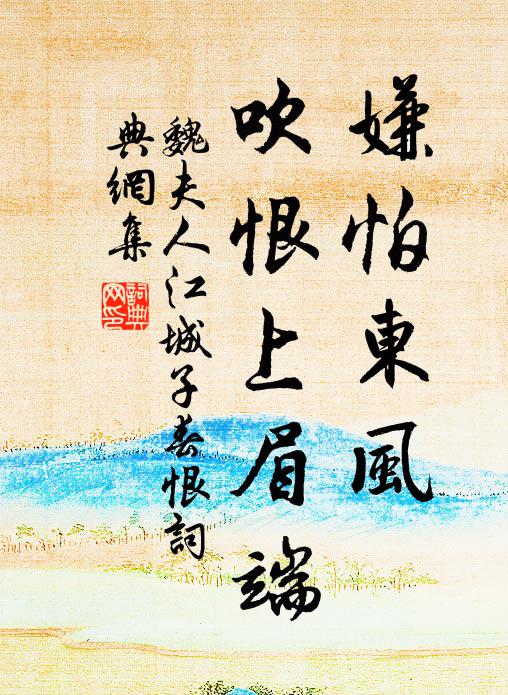 嫌怕東風
吹恨上眉端
魏夫人江城子春恨詞
典網集
詞典網印